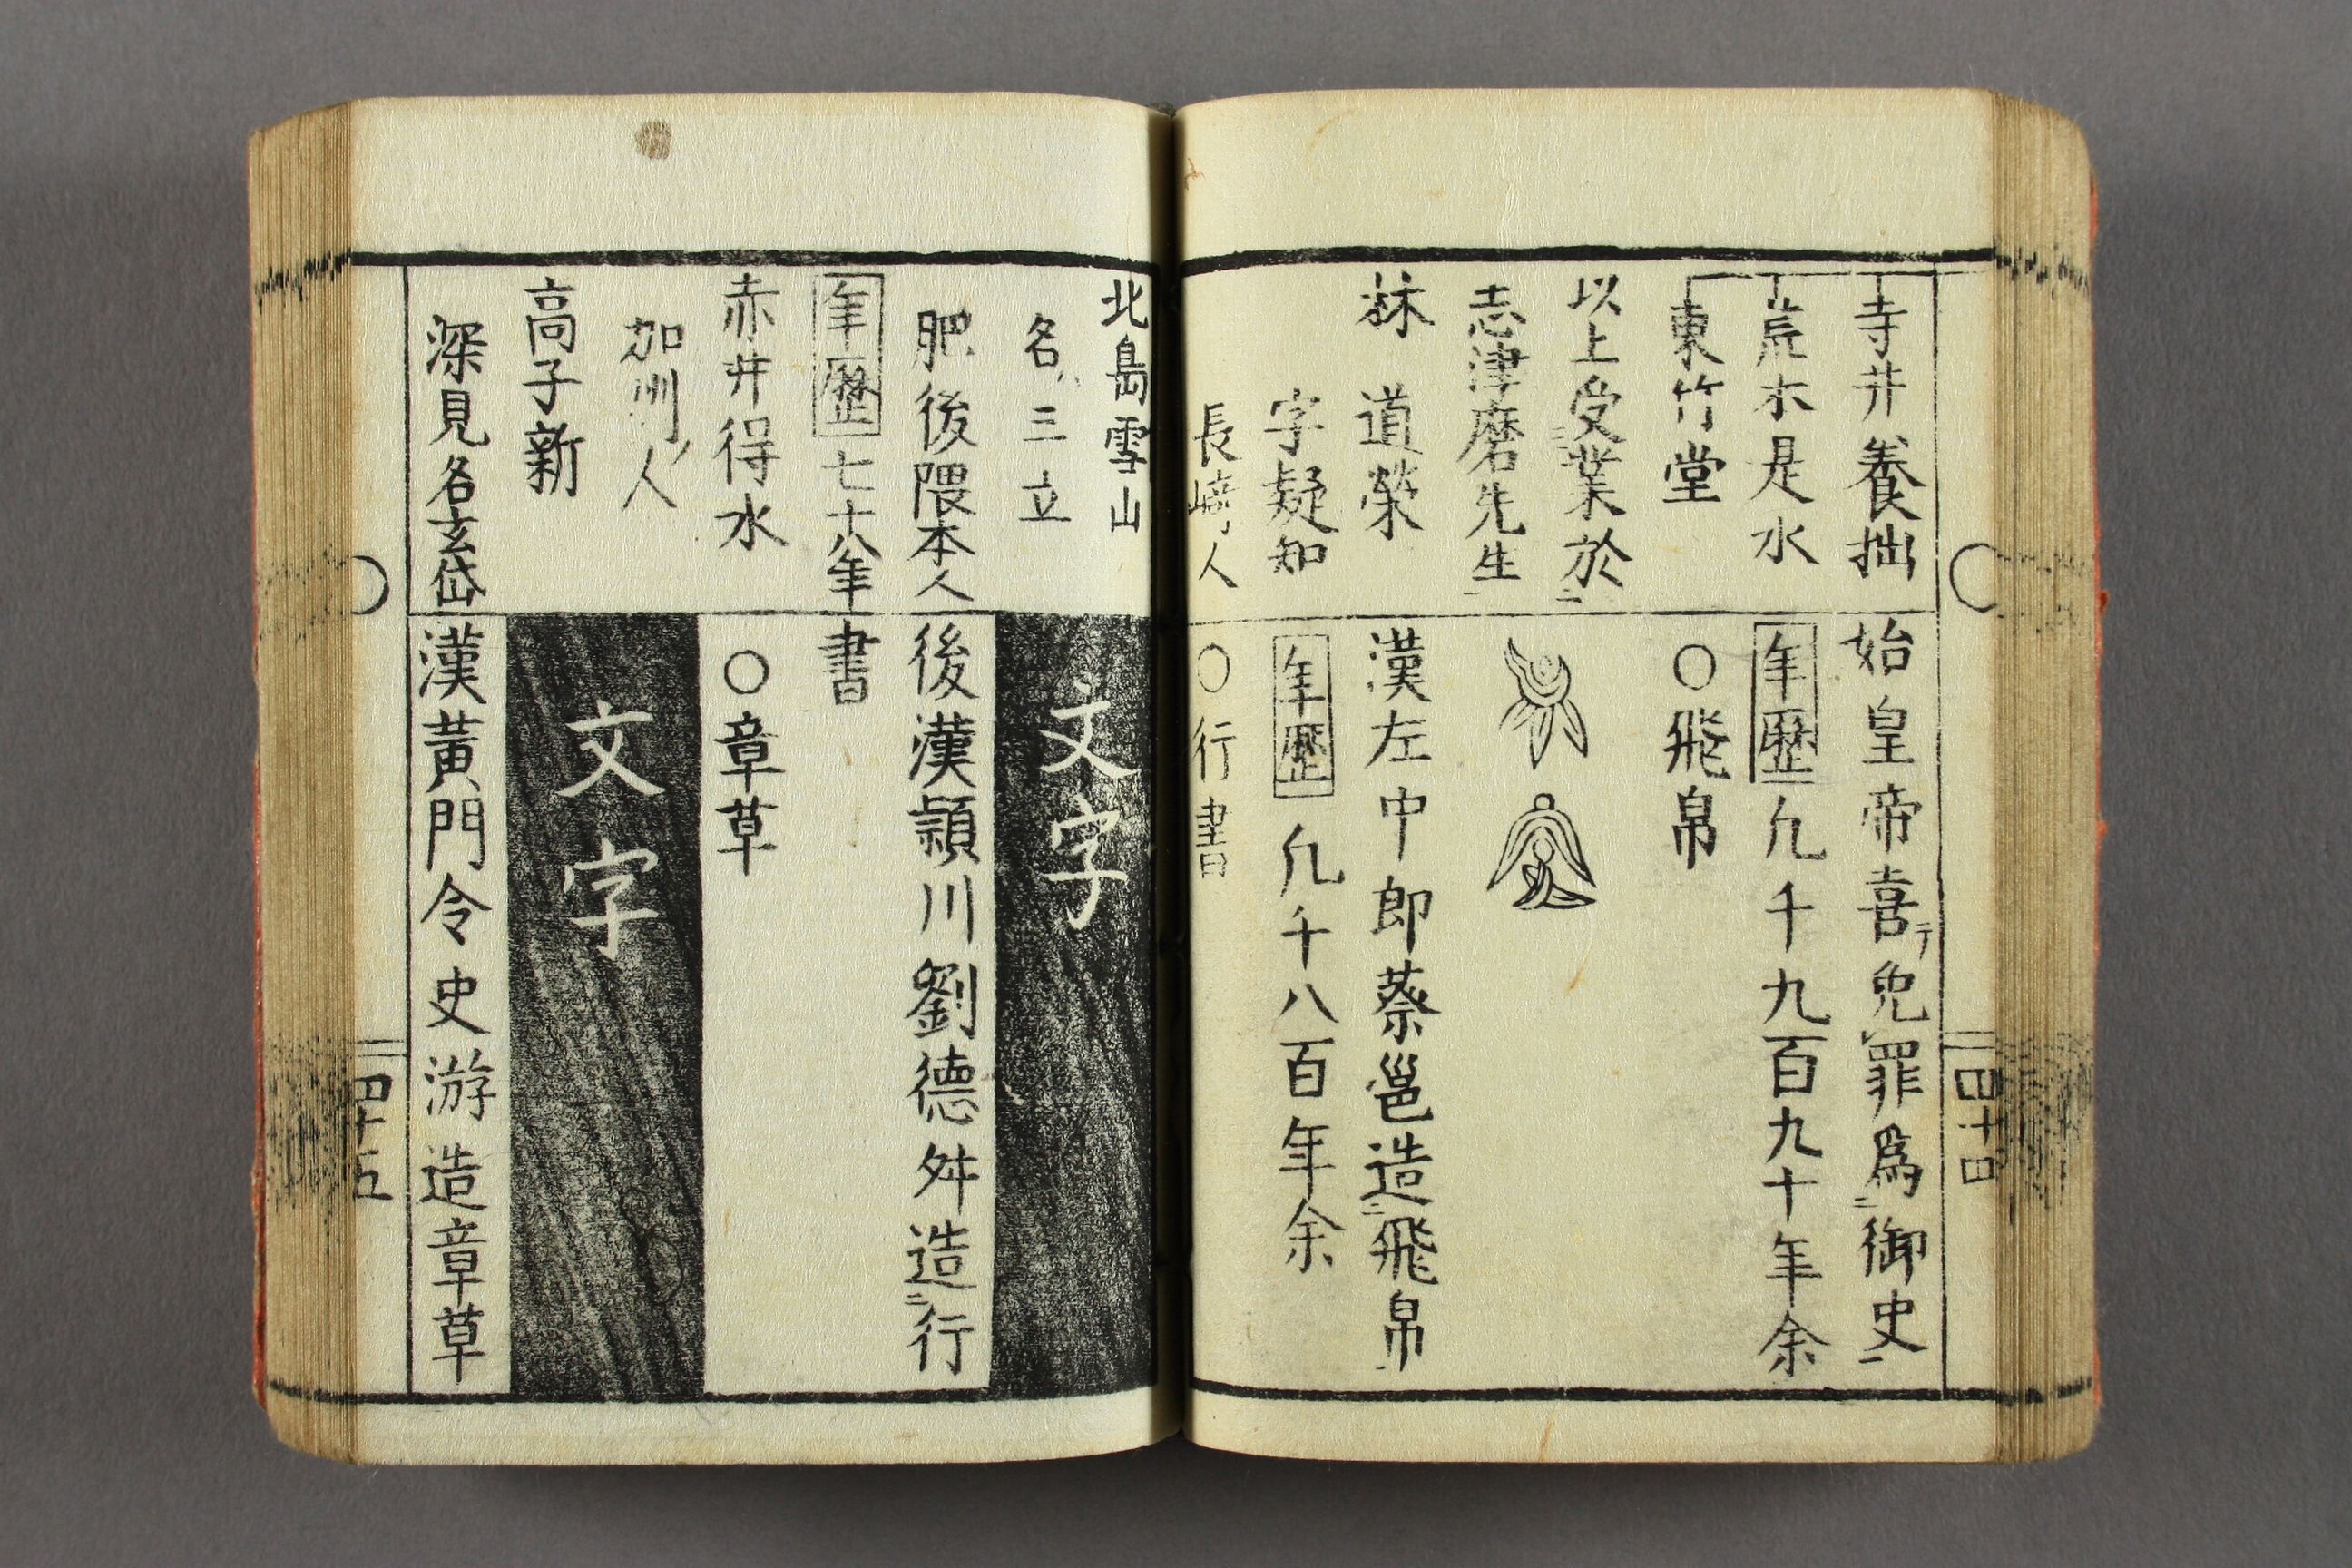 寺井養拙
荒木是水
東竹堂
以上受業於
志津磨先生
林 道榮
字疑知
長崎人
始皇帝喜テ免罪爲ニ御史一
年歷 凢千九百九十年余
〇飛帛
漢左中郎蔡邕造ニ飛帛一
年歷 凢千八百年余
〇行書
四十四
北島雪山
名三立
肥後隈本人
年歷 七十八年
赤井得水
加州ノ人
高子新
深見名玄岱
文字
後漢潁川劉德舛造ニ行
書
〇章草
文字
漢黃門令史游造章草
四十五